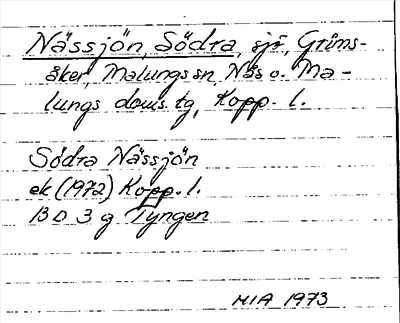 Nässjön, Södra, sjö, Grims-
åker, Malungs sn, Näs o. Ma-
lungs doms. tg, Kopp. l.
Södra Nässjön
ek (1972) Kopp. l.
13 D 3 g Tyngen
MIA 1973